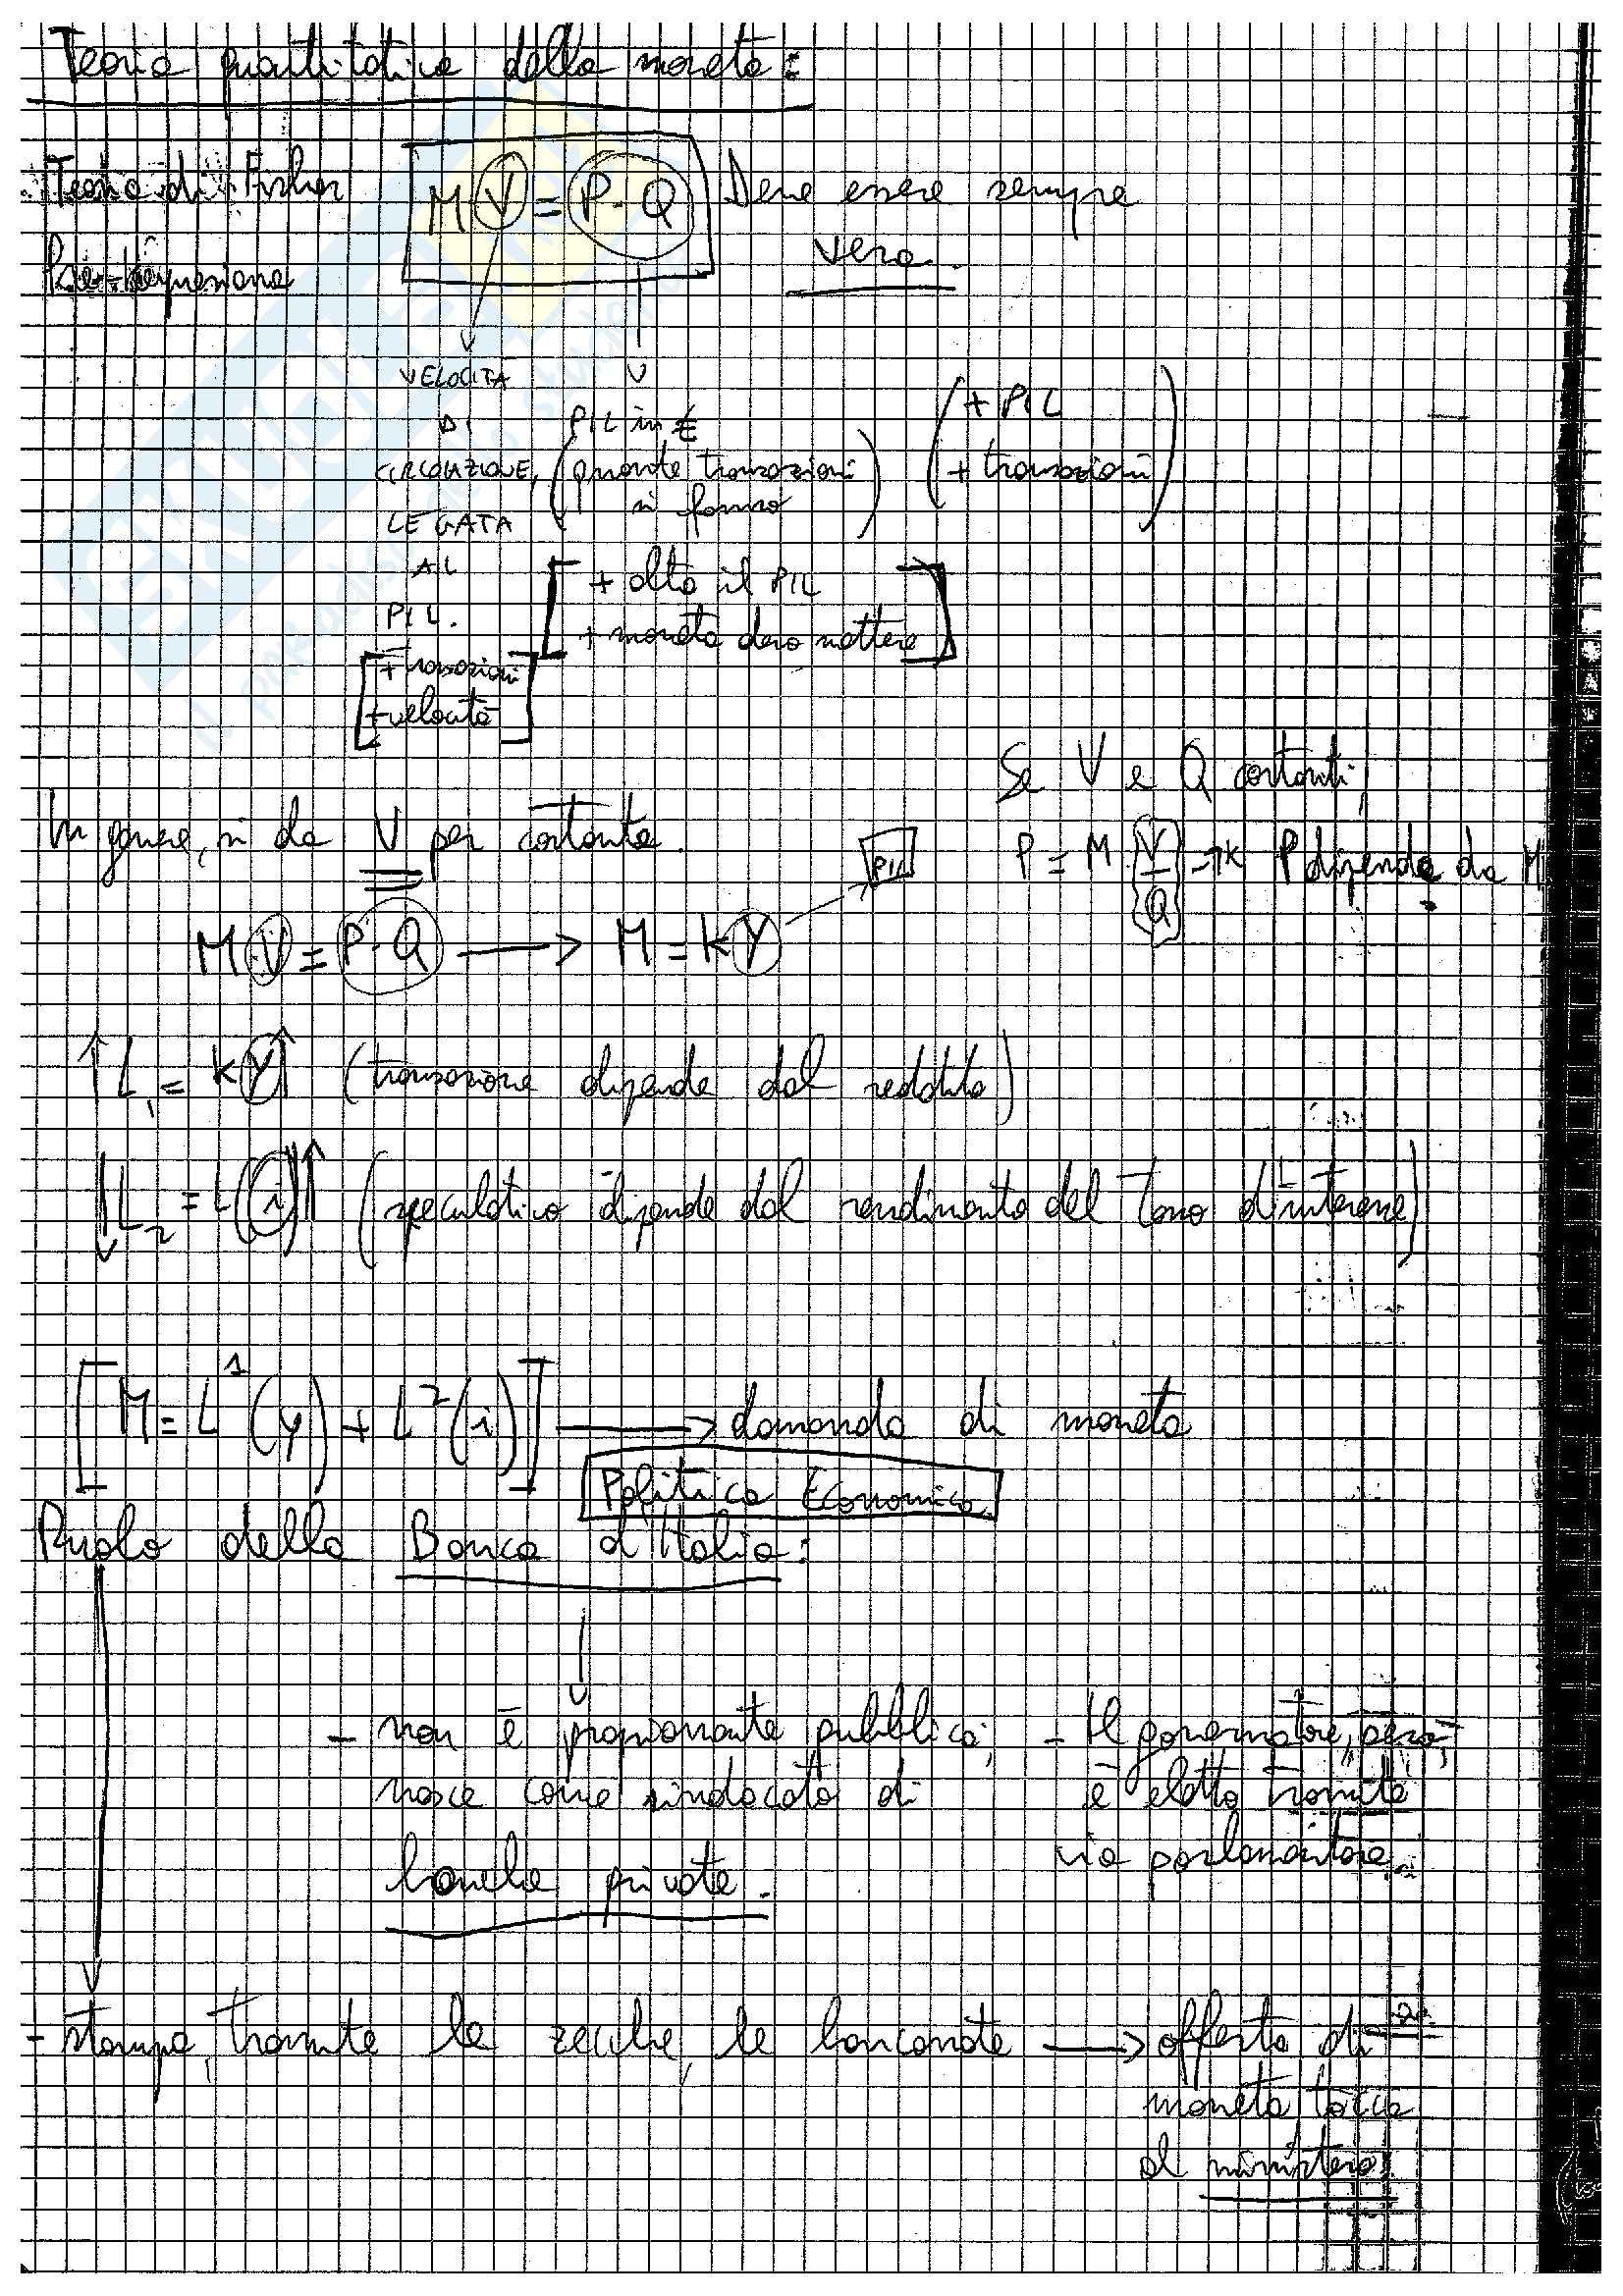 Teoria quantitativa della moneta:
Teoria di Fisher
Pre-keynesiana
M V = P · Q
Deve essere sempre
vera.
VELOCITÀ
DI
CIRCOLAZIONE,
LEGATA
AL
PIL.
[+ transazioni
+ velocità]
PIL in €
(quante transazioni
si fanno)
(+ PIL
+ transazioni)
[+ alto il PIL
+ moneta devo mettere]
Se V e Q costanti,
P = M V/Q → K P dipende da M.
In genere, si da V per costante.
M V = P · Q → M = K Y
PIL
↑ L1 = K Y ↑ (transazione dipende dal reddito)
↓ L2 = L(i) ↑ (speculativo dipende dal rendimento del tasso d'interesse)
[M = L1(y) + L2(i)] → domanda di moneta
Politica Economica
Ruolo della Banca d'Italia:
- non è propriamente pubblica,
nasce come sindacato di
banche private.
- Il governatore, però,
è eletto tramite
via parlamentare.
- stampa, tramite le zecche, le banconote → offerta di
moneta, tocca
al ministero.